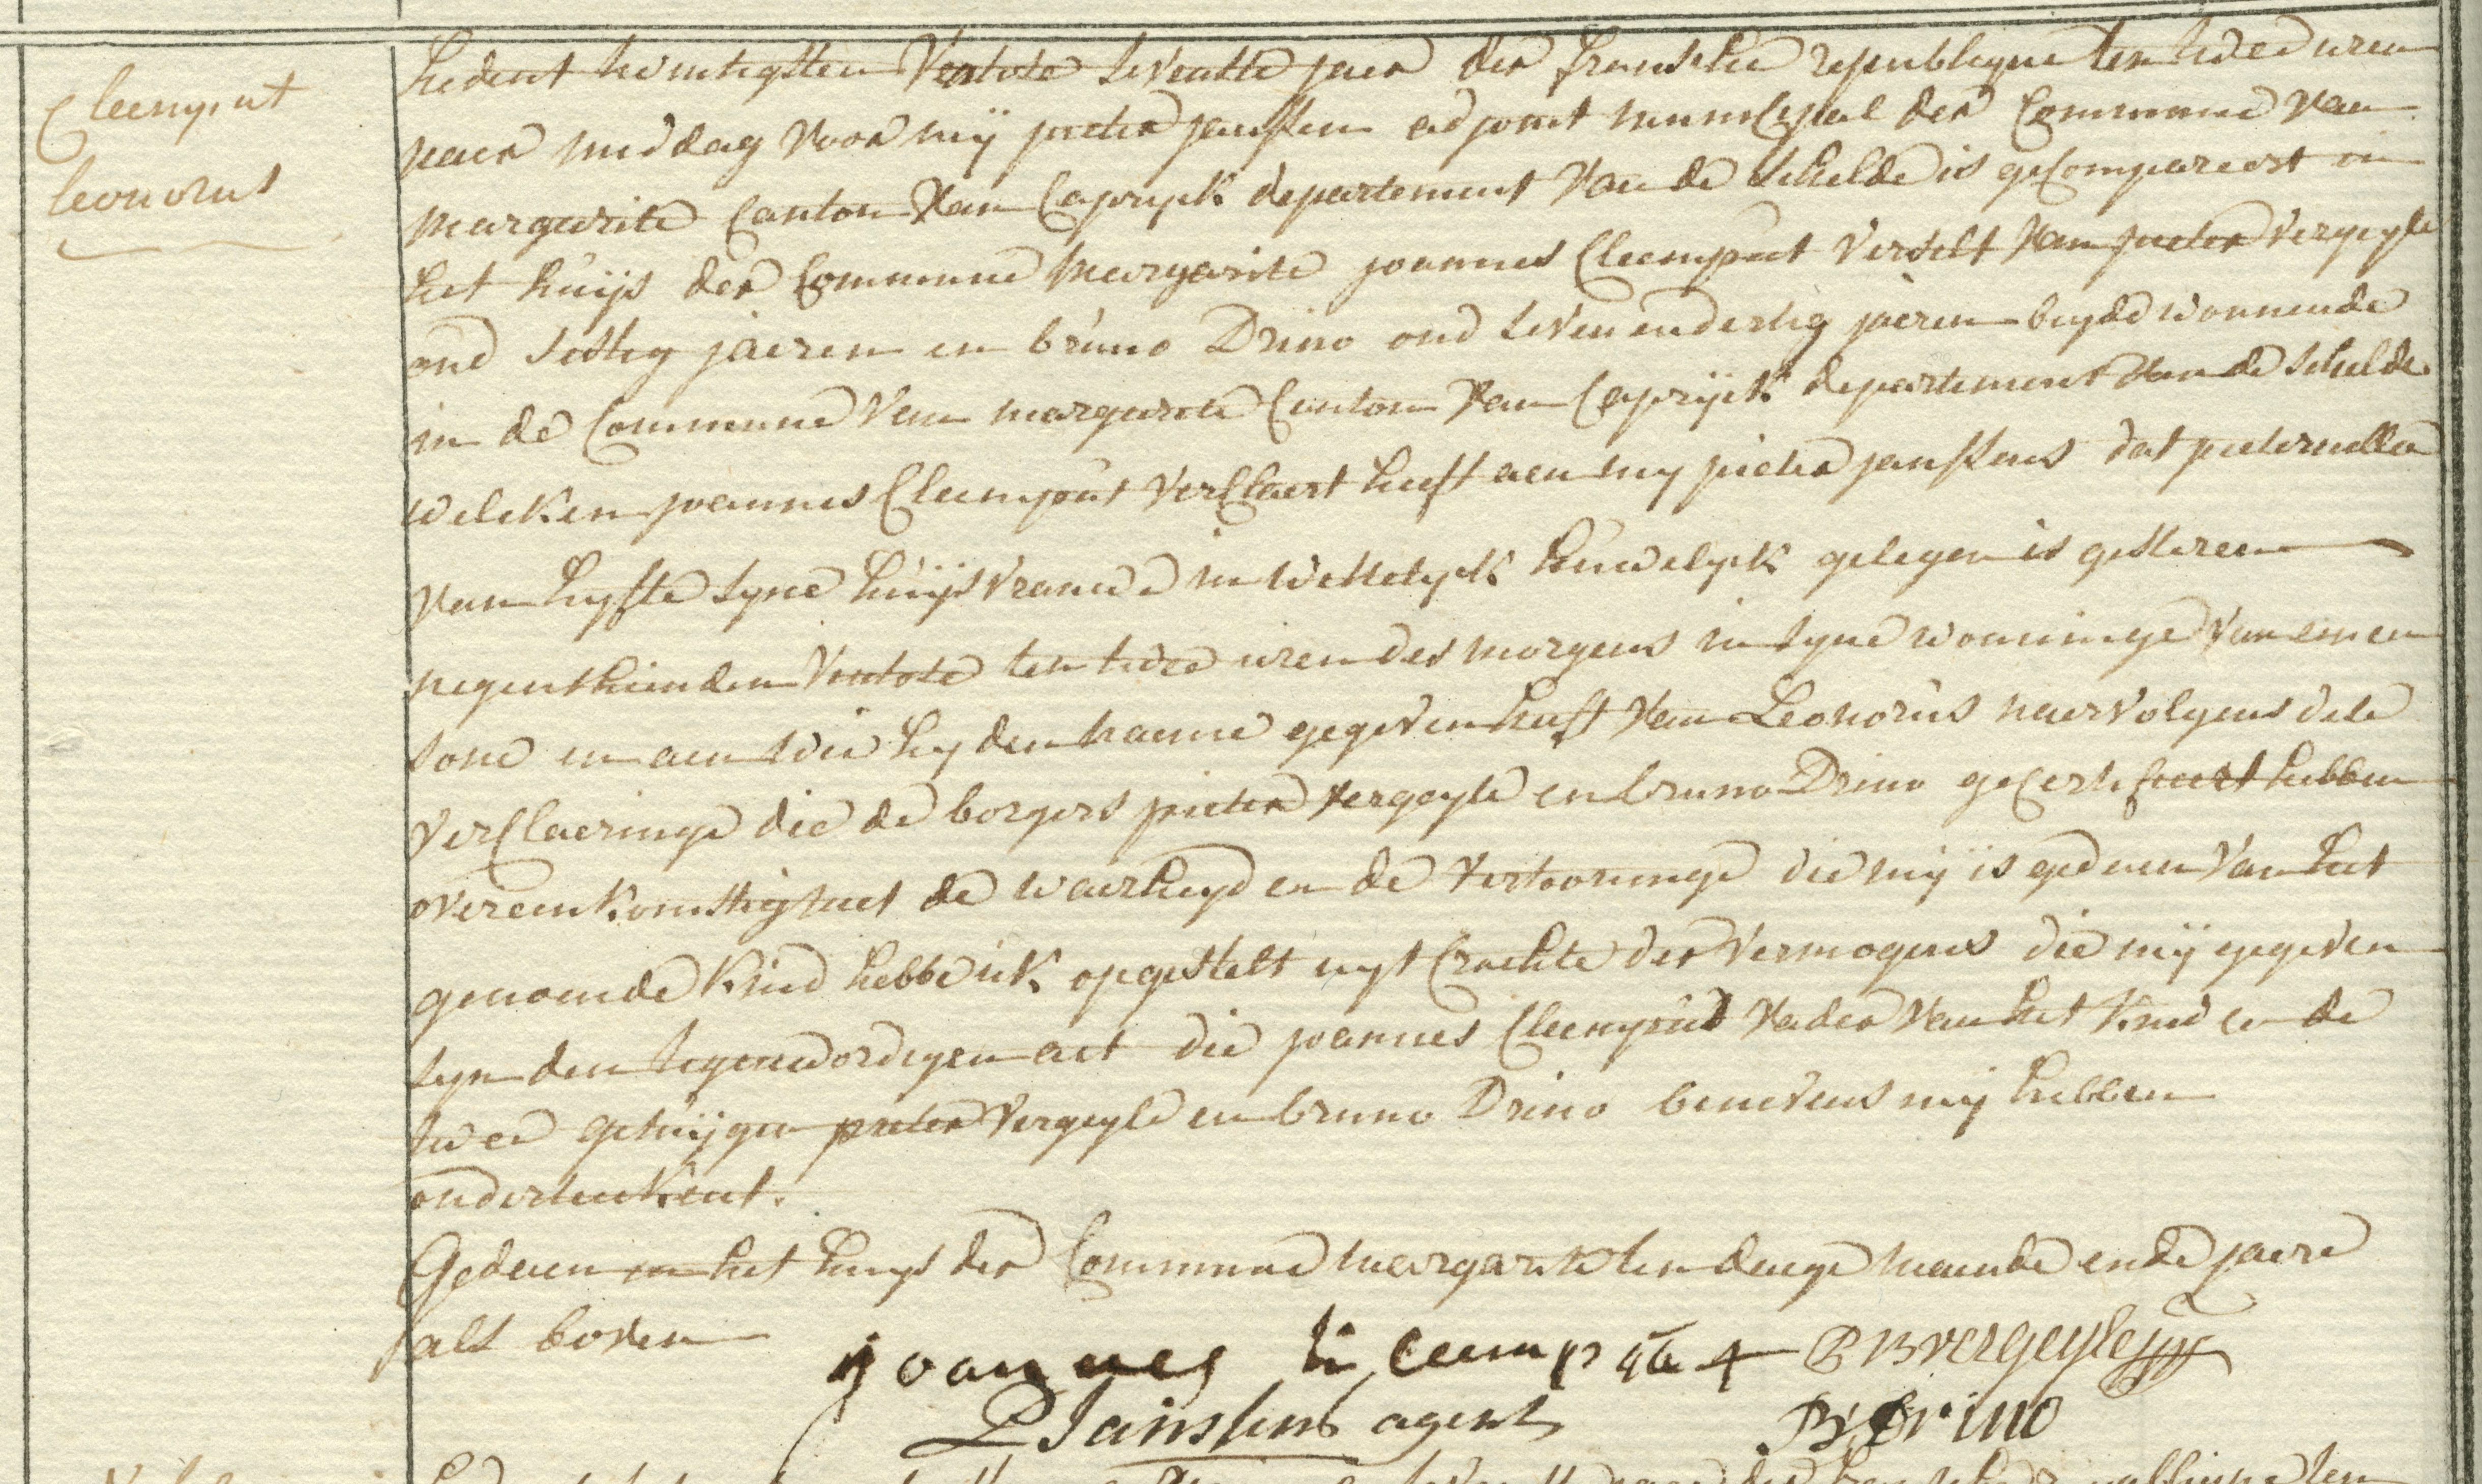 Cleemput
Leonorus
hedent twintigsten Ventose sevenste jaer der fransche republique ten twee uren
naer middag voor mij pieter janssens adjoint municipael der Commune van
margarite Canton van Capryck departement van de Schelde is gecompareert in
het huijs der Commune margarite joannes Cleemput verselt van pieter vergeyle
oud sestig jaeren en bruno Drino oud seven en dertig jaeren beyde woonende
in de Commune van margarite Canton van Caprijck departement van de Schelde
welcken joannes Cleemput verclaert heeft aen my pieter janssens dat pieternelle
van hyfte syne huijsvrauwe in wettelyck huwelyck gelegen is gisteren
negenthienden Ventose ten twee uren des morgens in syne wooninge van eenen
sone en aen wie hy den naeme gegeven heeft van Leonorus naervolgens dese
verclaeringe die de borgers pieter vergeyle en bruno Drino gecertifieert hebben
overeenkomstig met de waerheyd en de vertooninge die mij is gedaen van het
genoemde kind hebbe ick opgestelt uyt crachte der vermogens die mij gegeven
syn den tegenwordigen act die joannes Cleemput vader van het kind en de
twee getuijgen pieter vergeyle en bruno Drino benevens mij hebben
onderteekent.
Gedaen in het huys der Commune margarite ten dage maende ende jaere
als boven
joannes kleemput P B vergeyle
P Janssens agent B Drino